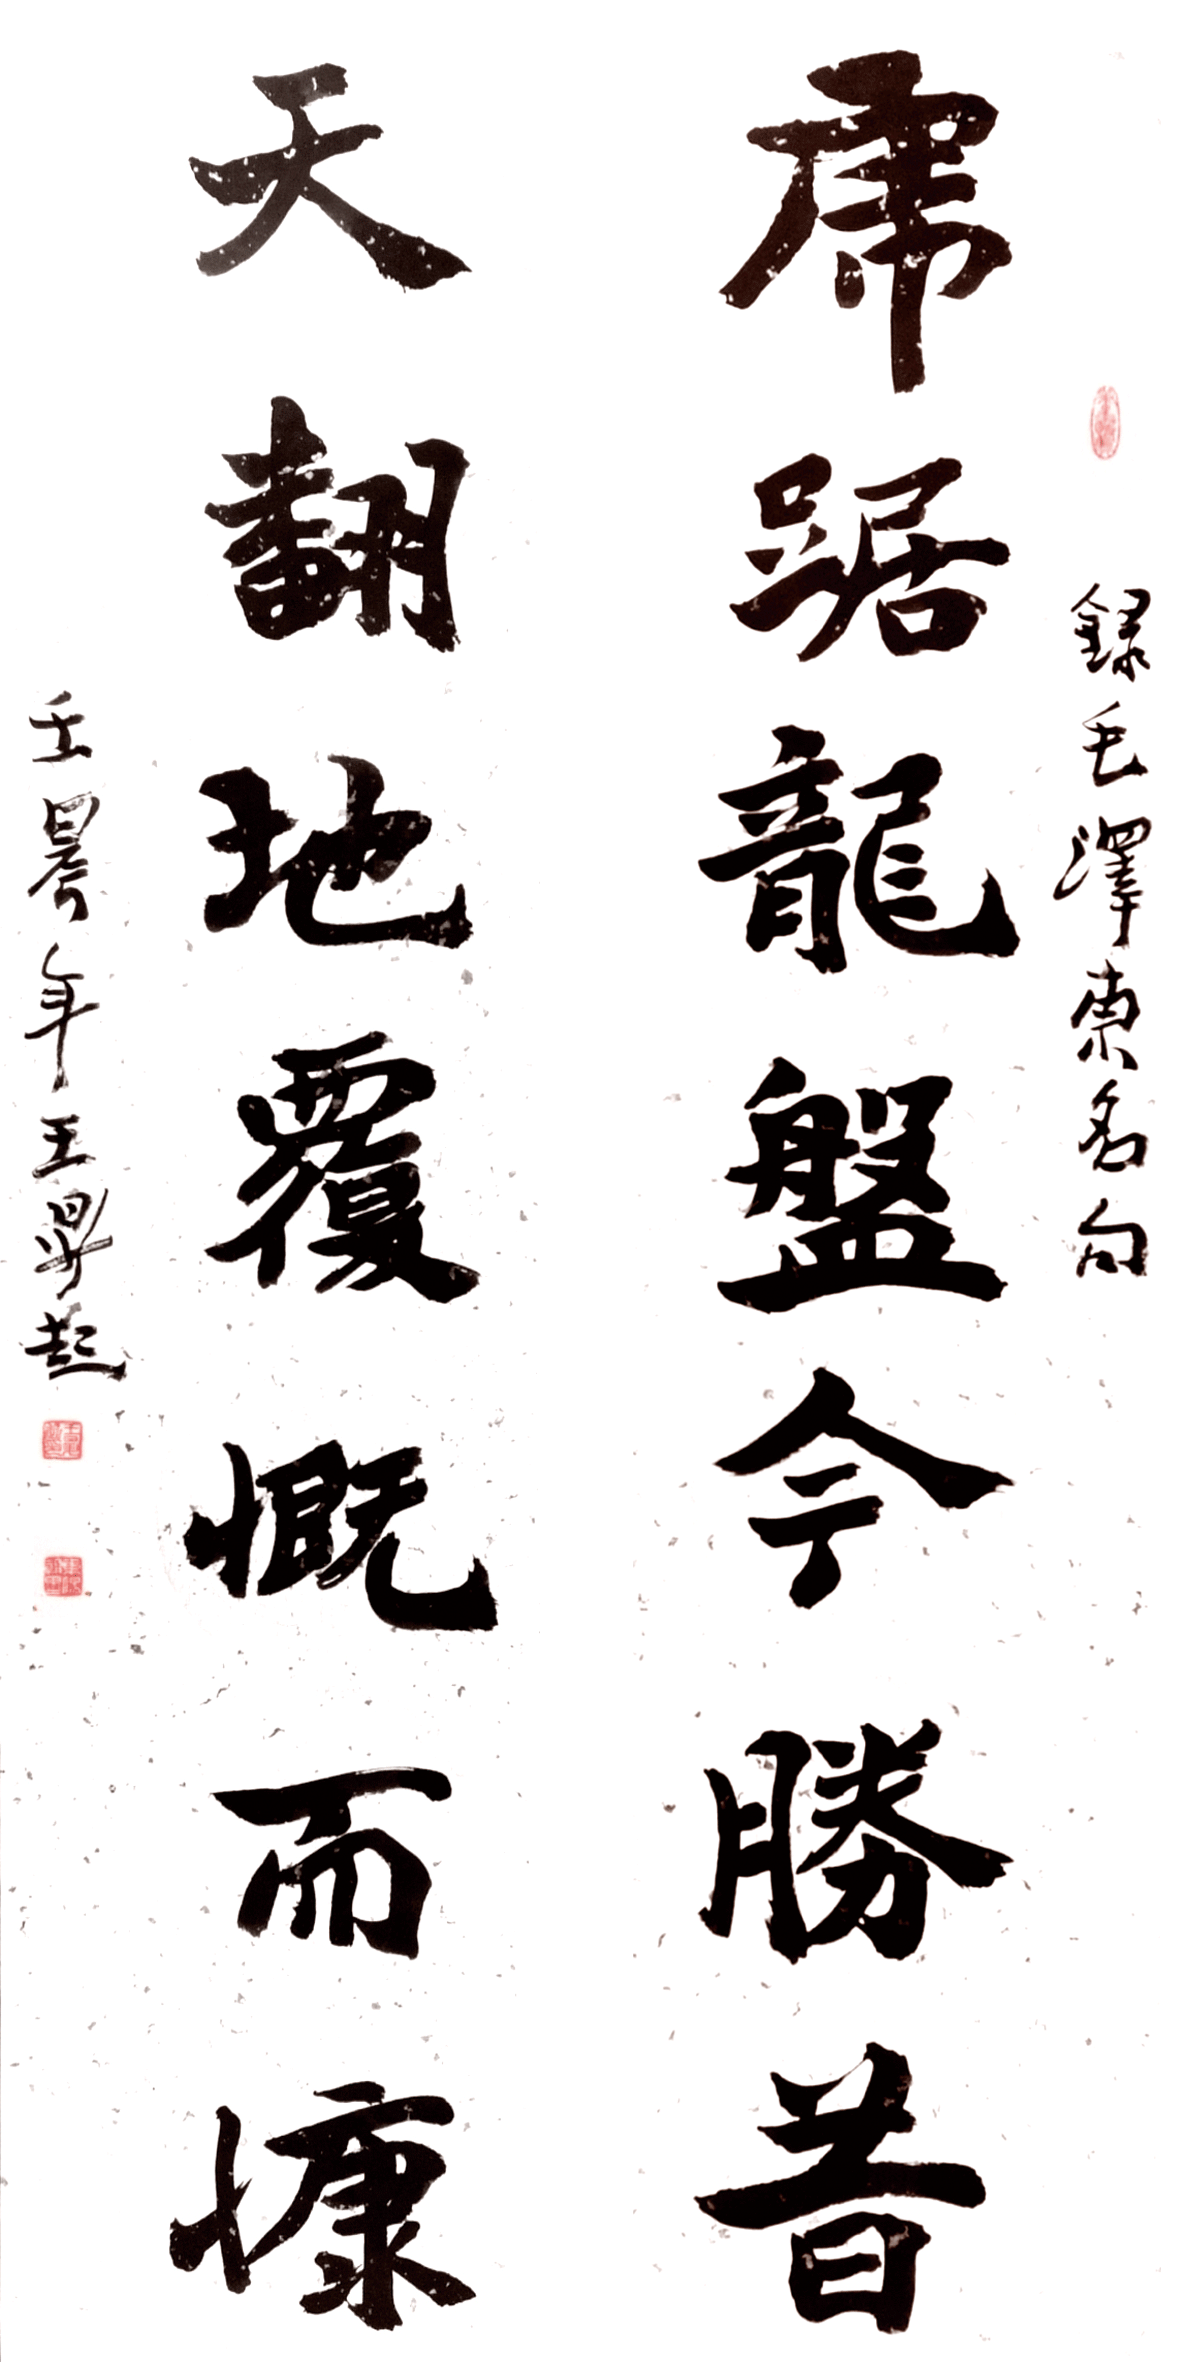 録毛澤東名句
虎踞龍盤今勝昔
天翻地覆慨而慷
壬辰年王昇起